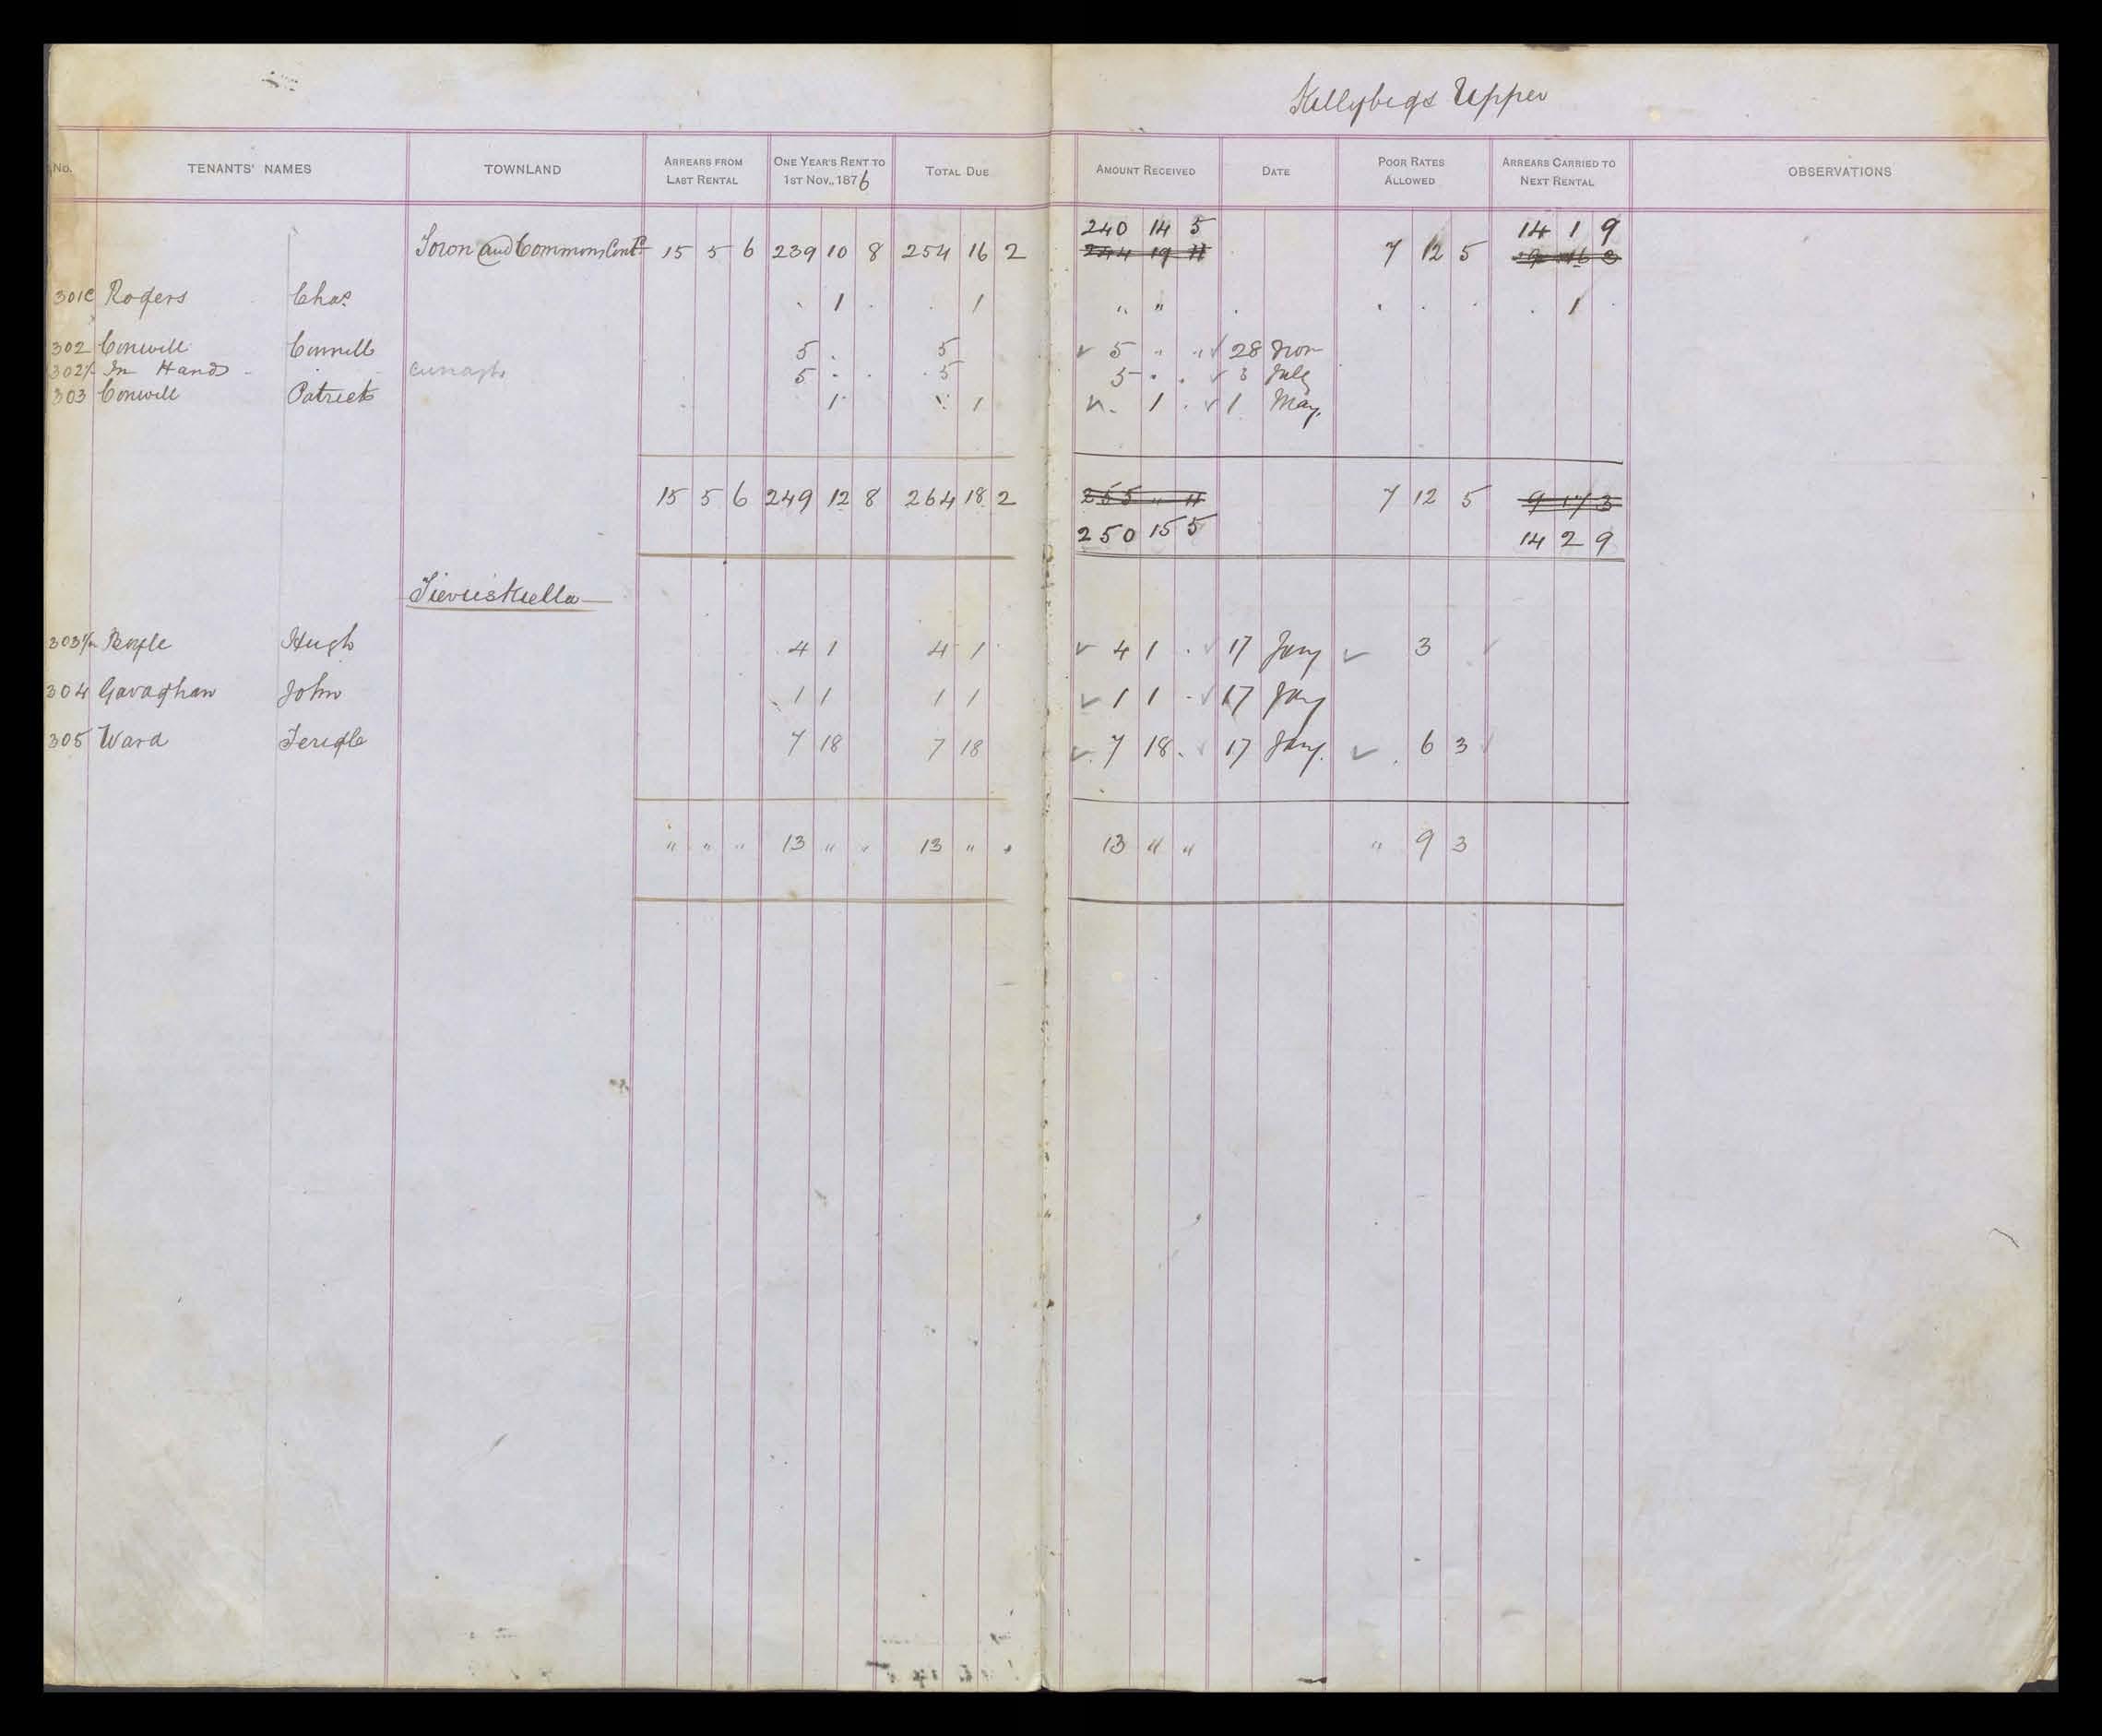 Killybegs Upper
No. TENANTS' NAMES TOWNLAND ARREARS FROM LAST RENTAL ONE YEAR'S RENT TO 1ST NOV., 1876 TOTAL DUE AMOUNT RECEIVED DATE POOR RATES ALLOWED ARREARS CARRIED TO NEXT RENTAL OBSERVATIONS
240 14 5 14 1 9
Town and Commons Contd 15 5 6 239 10 8 254 16 2 244 19 11 7 12 5
301c Rogers Chas. 1 1 " " 1
302 Conwell Connell 5 5 5 " " 28 Nov
In Hands 5 5 5 3 July
303 Conwell Patrick 1 1 1 1 May.
15 5 6 249 12 8 264 18 2 255 " 11 7 12 5 9 17 3
250 15 5 14 2 9
303½ Boyle Hugh 4 1 4 1 4 1 17 Jany 3
304 Gavaghan John 1 1 1 1 1 1 17 Jany
305 Ward Feridle 7 18 7 18 7 18 17 Jany. 6 3
" " " 13 " " 13 " " 13 " " " 9 3